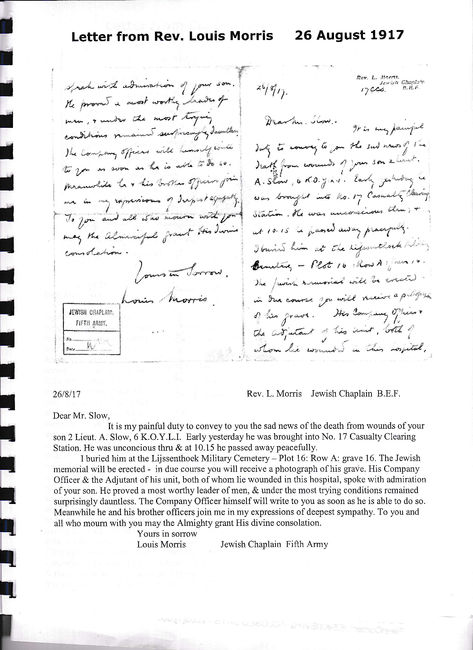 Letter from Rev. Louis Morris 26 August 1917
speak with admiration of your son.
He proved a most worthy leader of
men, & under the most trying
conditions remained surprisingly dauntless.
The Company Officer will himself write
to you as soon as he is able to do so.
Meanwhile he & his brother officers join
me in my expressions of deepest sympathy.
To you and all who mourn with you
may the Almighty grant His Divine
consolation.
Yours in Sorrow.
Louis Morris.
JEWISH CHAPLAIN,
FIFTH ARMY.
No.
Date
Rev. L. Morris
Jewish Chaplain
17 CCS. B.E.F
26/8/17.
Dear Mr. Slow.
It is my painful
duty to convey to you the sad news of the
death from wounds of your son 2 Lieut.
A. Slow, 6 K.O.Y.L.I. Early yesterday he
was brought into No. 17 Casualty Clearing
Station. He was unconscious thru, &
at 10.15 he passed away peacefully.
I buried him at the Lijssenthoek Military
Cemetery – Plot 16: Row A: grave 16.
The Jewish memorial will be erected –
in due course you will receive a photograph
of his grave. His Company Officer &
the adjutant of his unit, both of
whom lie wounded in this hospital,
26/8/17 Rev. L. Morris Jewish Chaplain B.E.F.
Dear Mr. Slow,
It is my painful duty to convey to you the sad news of the death from wounds of your
son 2 Lieut. A. Slow, 6 K.O.Y.L.I. Early yesterday he was brought into No. 17 Casualty Clearing
Station. He was unconcious thru & at 10.15 he passed away peacefully.
I buried him at the Lijssenthoek Military Cemetery – Plot 16: Row A: grave 16. The Jewish
memorial will be erected - in due course you will receive a photograph of his grave. His Company
Officer & the Adjutant of his unit, both of whom lie wounded in this hospital, spoke with admiration
of your son. He proved a most worthy leader of men, & under the most trying conditions remained
surprisingly dauntless. The Company Officer himself will write to you as soon as he is able to do so.
Meanwhile he and his brother officers join me in my expressions of deepest sympathy. To you and
all who mourn with you may the Almighty grant His divine consolation.
Yours in sorrow
Louis Morris Jewish Chaplain Fifth Army